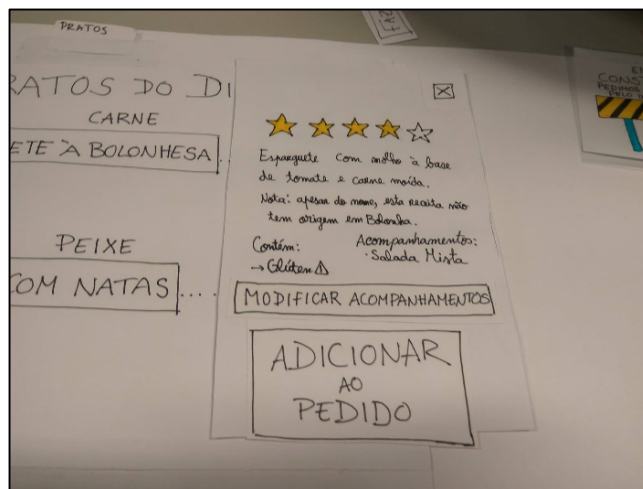 PRATOS
FAZ
RATOS DO DI
CARNE
ETE À BOLONHESA
...
PEIXE
COM NATAS
....
Esparguete com molho à base
de tomate e carne moída.
Nota: apesar do nome, esta receita não
tem origem em Bolonha.
Contém:
→ Glúten
Acompanhamentos:
· Salada Mista
MODIFICAR ACOMPANHAMENTOS
ADICIONAR
AO
PEDIDO
E
CONST
PEDIMOS
PELO